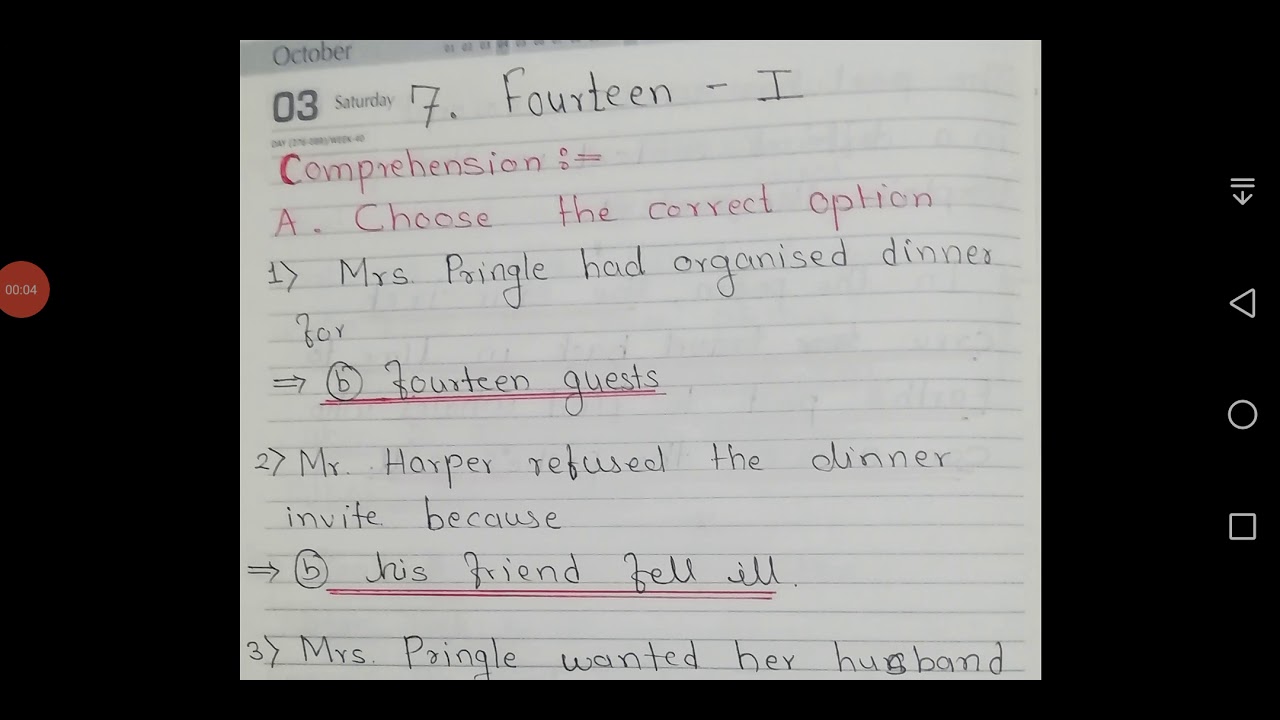 October
03 Saturday 7. Fourteen - I
DAY (276-089)/WEEK-40
Comprehension :-
A. Choose the correct option
1) Mrs. Pringle had organised dinner
for
⇒ ⓑ fourteen guests
2) Mr. Harper refused the dinner
invite because
⇒ ⓑ his friend fell ill.
3) Mrs. Pringle wanted her husband
00:04